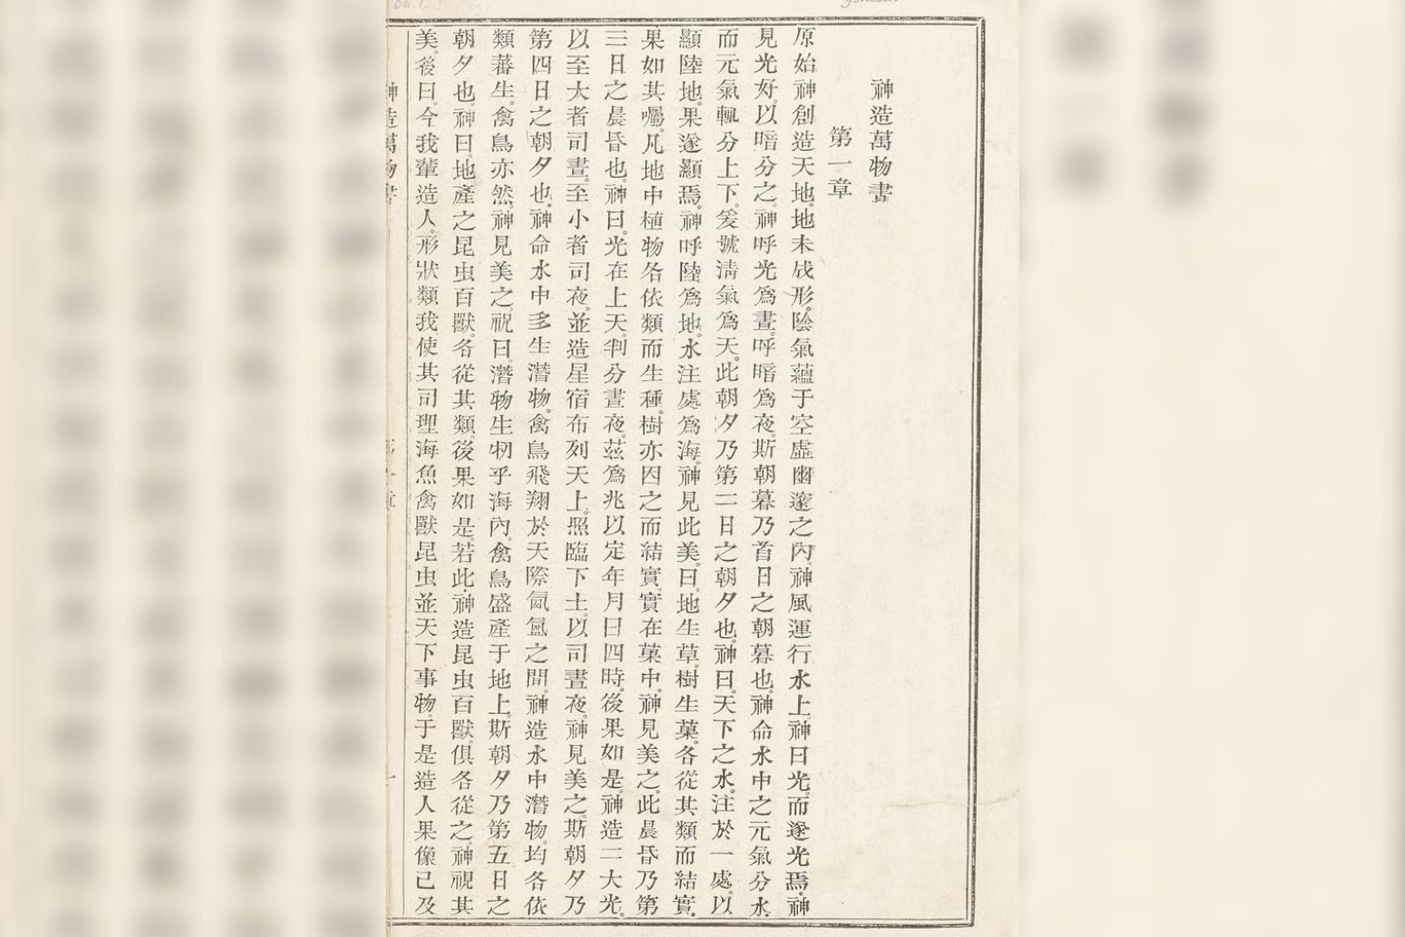 神造萬物書
第一章
原始神創造天地。地未成形。陰氣蘊于空虛幽邃之內。神風運行水上。神曰光。而遂光焉。神
見光好。以暗分之。神呼光爲晝。呼暗爲夜。斯朝暮乃首日之朝暮也。神命水中之元氣分水。
而元氣輒分上下。爰號淸氣爲天。此朝夕乃第二日之朝夕也。神曰。天下之水。注於一處。以
顯陸地。果遂顯焉。神呼陸爲地。水注處爲海。神見此美。曰。地生草。樹生菓。各從其類而結實。
果如其囑。凡地中植物各依類而生種。樹亦因之而結實。實在菓中。神見美之。此晨昏乃第
三日之晨昏也。神曰。光在上天。判分晝夜。茲爲兆以定年月日四時。後果如是。神造二大光。
以至大者司晝。至小者司夜。並造星宿布列天上。照臨下土。以司晝夜。神見美之。斯朝夕乃
第四日之朝夕也。神命水中多生潛物。禽鳥飛翔於天際氤氳之間。神造水中潛物。均各依
類蕃生。禽鳥亦然。神見美之。祝曰。潛物生牣乎海內。禽鳥盛產于地上。斯朝夕乃第五日之
朝夕也。神曰。地產之昆虫百獸。各從其類。後果如是。若此。神造昆虫百獸。俱各從之。神視其
美。後曰。今我輩造人。形狀類我。使其司理海魚禽獸昆虫並天下事物。于是造人果像己及
神造萬物書